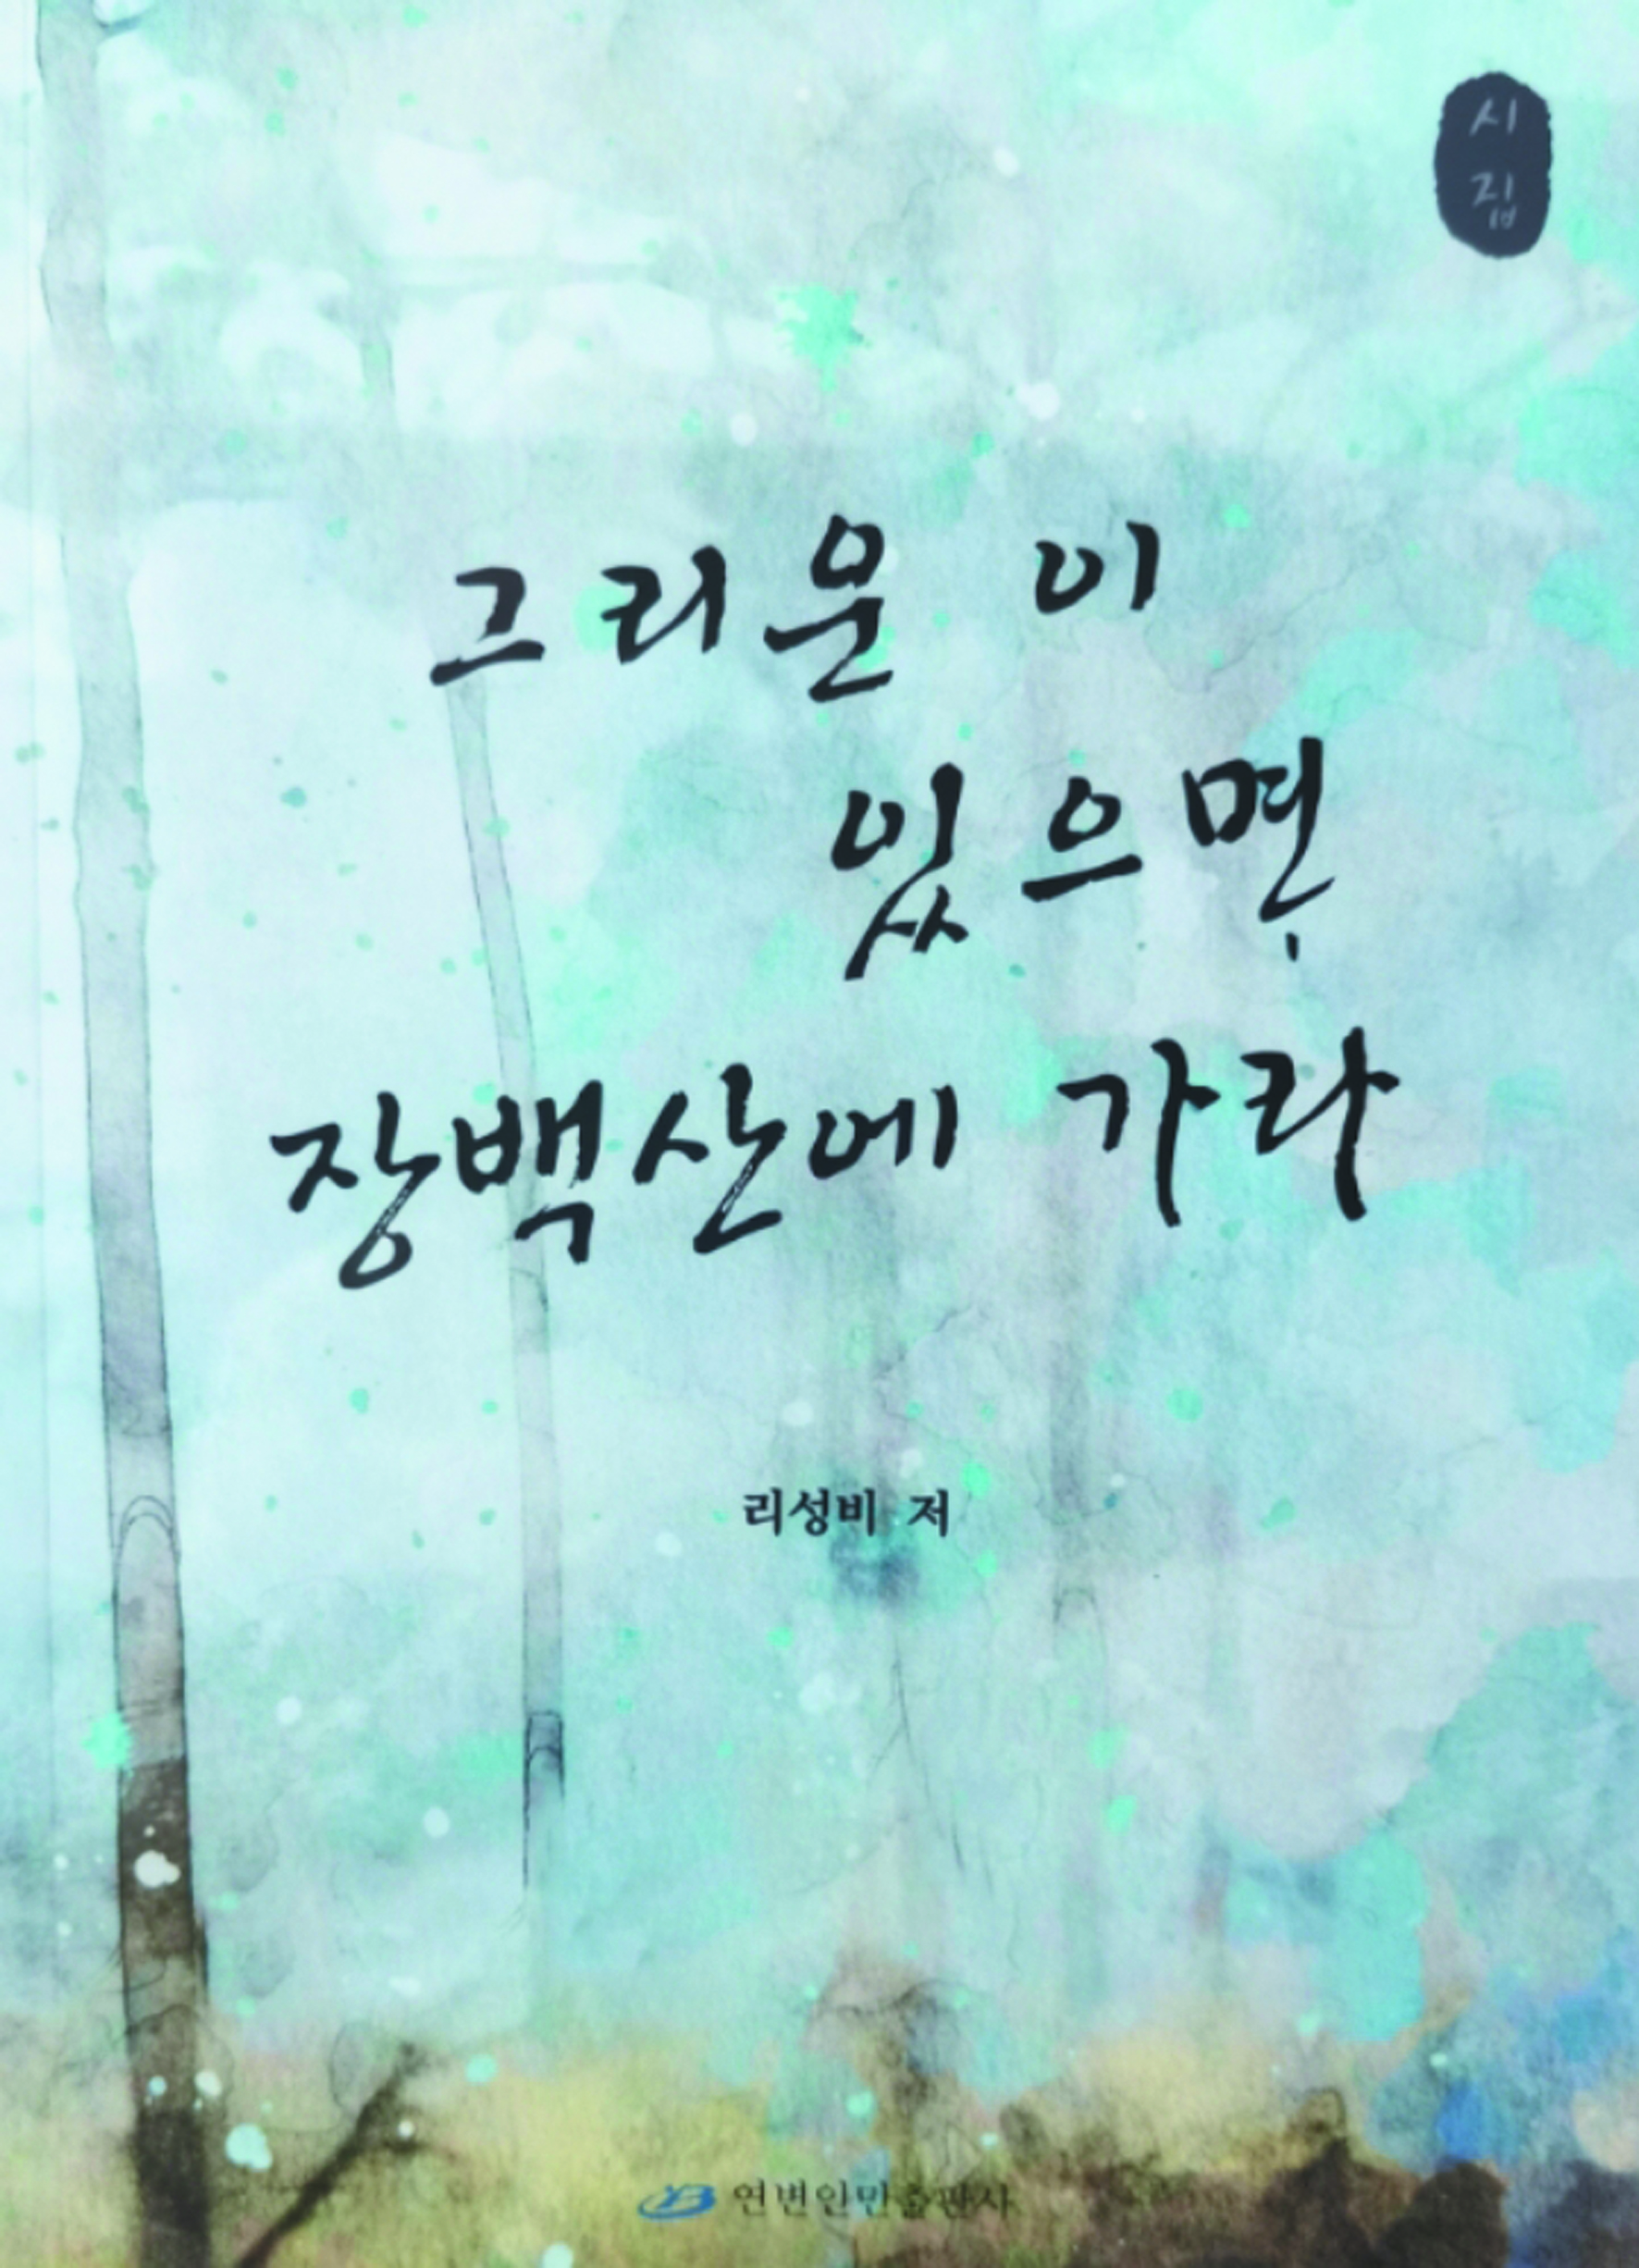 시집
그리운 이
있으면
장백산에 가라
리성비 저
연변인민출판사